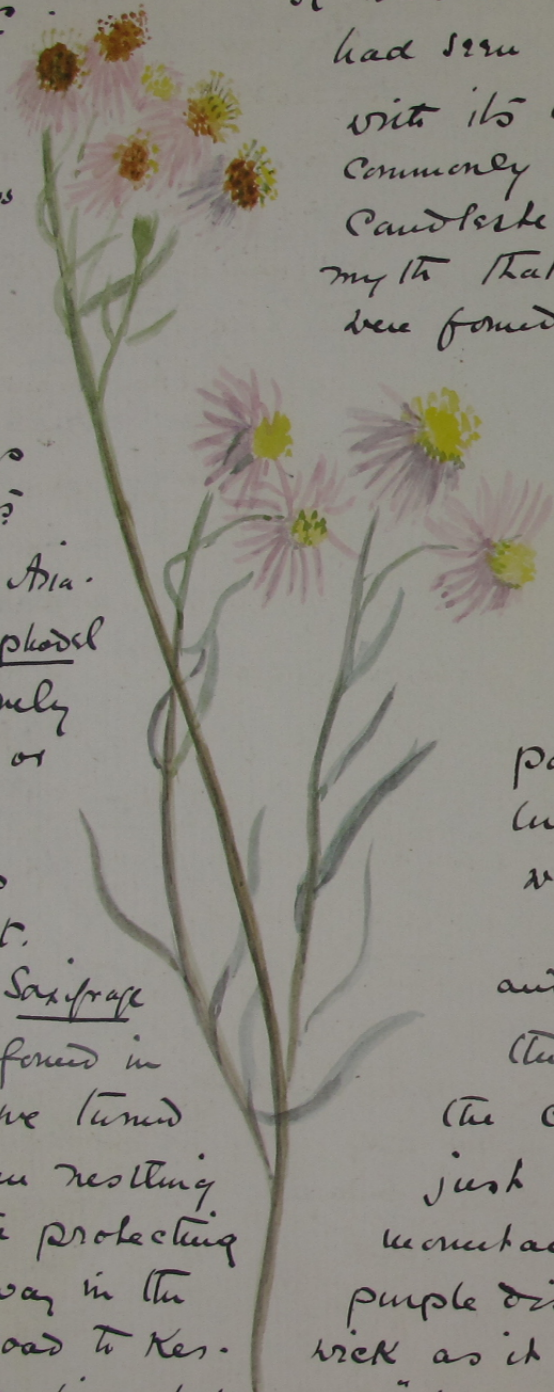 had seen
with its
commonly
Candleste
myth that
were formed
?
Asia.
phodel
nely
or
t.
Saxifrage
found in
we turned
nestling
protecting
way in the
oad to Kes-
po
lu
w
the
the
just
purple
wick as it